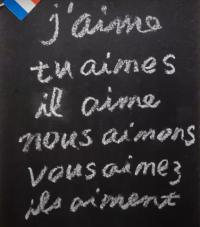 j'aime
tu aimes
il aime
nous aimons
vous aimez
ils aiment